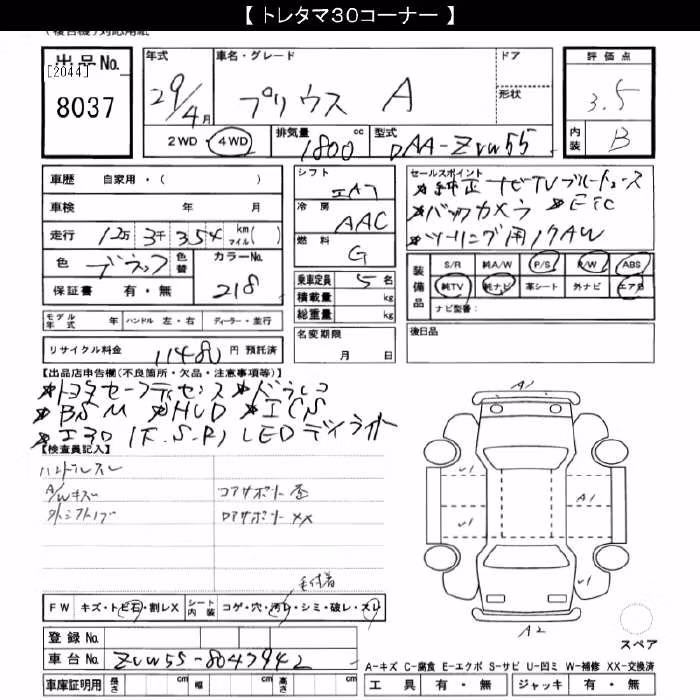 【トレタマ30コーナー】
（複合機）対応用紙
出品No.
[2044]
8037
年式 29/4月
車名・グレード プリウス A
ドア
形状
評価点 3.5
内装 B
2WD・4WD 排気量 1800 cc 型式 DAA-ZVW55
車歴 自家用・( )
車検 年 月
走行 12万 3千 354 km マイル( )
色 ブラック 色替 カラーNo. 218
保証書 有・無
シフト
冷房 AAC
燃料 G
乗車定員 5名
積載量 kg
総重量 kg
セールスポイント
★純正ナビTVブルートゥース
★バックカメラ ★ETC
★ツーリング用17AW
装備品 S/R 純A/W P/S P/W ABS
純TV 純ナビ 革シート 外ナビ エアB
ナビ型番：
モデル年式 年 ハンドル 左・右 ディーラー・並行
名変期限 月 日
後日品
リサイクル料金 11480 円 預託済
【出品店申告欄(不良箇所・欠品・注意事項等)】
★トヨタセーフティセンス ★ドラレコ
★BSM ★HUD ★ICS
LEDデイライト
【検査員記入】
ハンドルスレ
A/Wキズ コアサポート歪
ロアサポート XX
毛付着
FW キズ・トビ石・割レX シート内装 コゲ・穴・汚レ・シミ・破レ・スレ
登録No.
車台No. ZVW55-8047942
車庫証明用 長さ cm 幅 cm 高さ cm
A1
U1
A1
U1
A2
スペア
A-キズ C-腐食 E-エクボ S-サビ U-凹ミ W-補修 XX-交換済
工具 有・無 ジャッキ 有・無